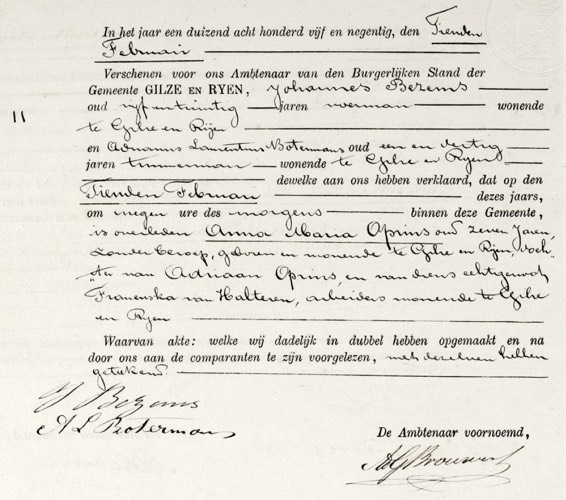 In het jaar een duizend acht honderd vijf en negentig, den Tienden
Februari
Verschenen voor ons Ambtenaar van den Burgerlijken Stand der
Gemeente GILZE EN RYEN, Johannes Bezems
oud vijfentwintig jaren voerman wonende
te Gilze en Rijen
11
en Adrianus Laurentius Botermans oud een en dertig
jaren timmerman wonende te Gilze en Ryen
dewelke aan ons hebben verklaard, dat op den
Tienden Februari dezes jaars,
om negen ure des morgens binnen deze Gemeente,
is overleden Anna Maria Oprins oud zeven Jaren,
zonder beroep, geboren en wonende te Gilze en Rijen, doch-
"ter van Adriaan Oprins, en van diens echtgenoot
Francuska van Halteren, arbeiders wonende te Gilze
en Ryen
Waarvan akte: welke wij dadelijk in dubbel hebben opgemaakt en na
door ons aan de comparanten te zijn voorgelezen, met dezelven hebben
getekend.
J Bezems
A L Botermans
De Ambtenaar voornoemd,